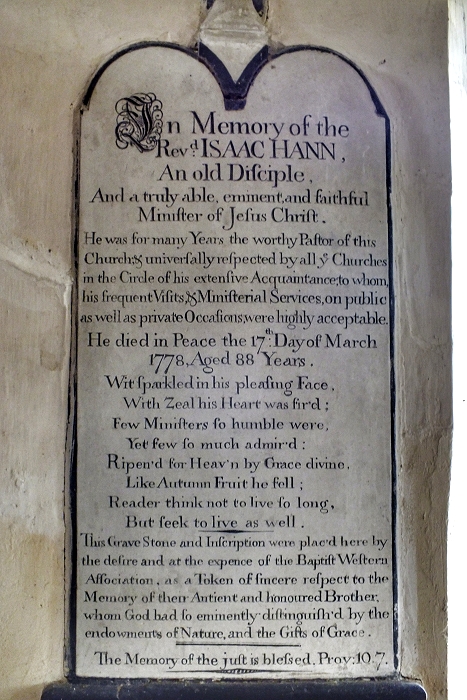 In Memory of the
Revd. ISAAC HANN,
An old Diſciple,
And a truly able, eminent, and faithful
Miniſter of Jeſus Chriſt.
He was for many Years the worthy Paſtor of this
Church; & univerſally reſpected by all ye Churches
in the Circle of his extenſive Acquaintance; to whom,
his frequent Viſits, & Miniſterial Services, on public
as well as private Occaſions, were highly acceptable.
He died in Peace the 17th. Day of March
1778, Aged 88 Years.
Wit ſparkled in his pleaſing Face,
With Zeal his Heart was fir'd;
Few Miniſters ſo humble were,
Yet few ſo much admir'd:
Ripen'd for Heav'n by Grace divine,
Like Autumn Fruit he fell;
Reader think not to live ſo long,
But ſeek to live as well.
This Grave Stone and Inſcription were plac'd here by
the deſire and at the expence of the Baptiſt Weſtern
Aſſociation, as a Token of ſincere reſpect to the
Memory of their Antient and honoured Brother,
whom God had ſo eminently diſtinguiſh'd by the
endowments of Nature, and the Gifts of Grace.
The Memory of the juſt is bleſsed, Prov: 10.7.